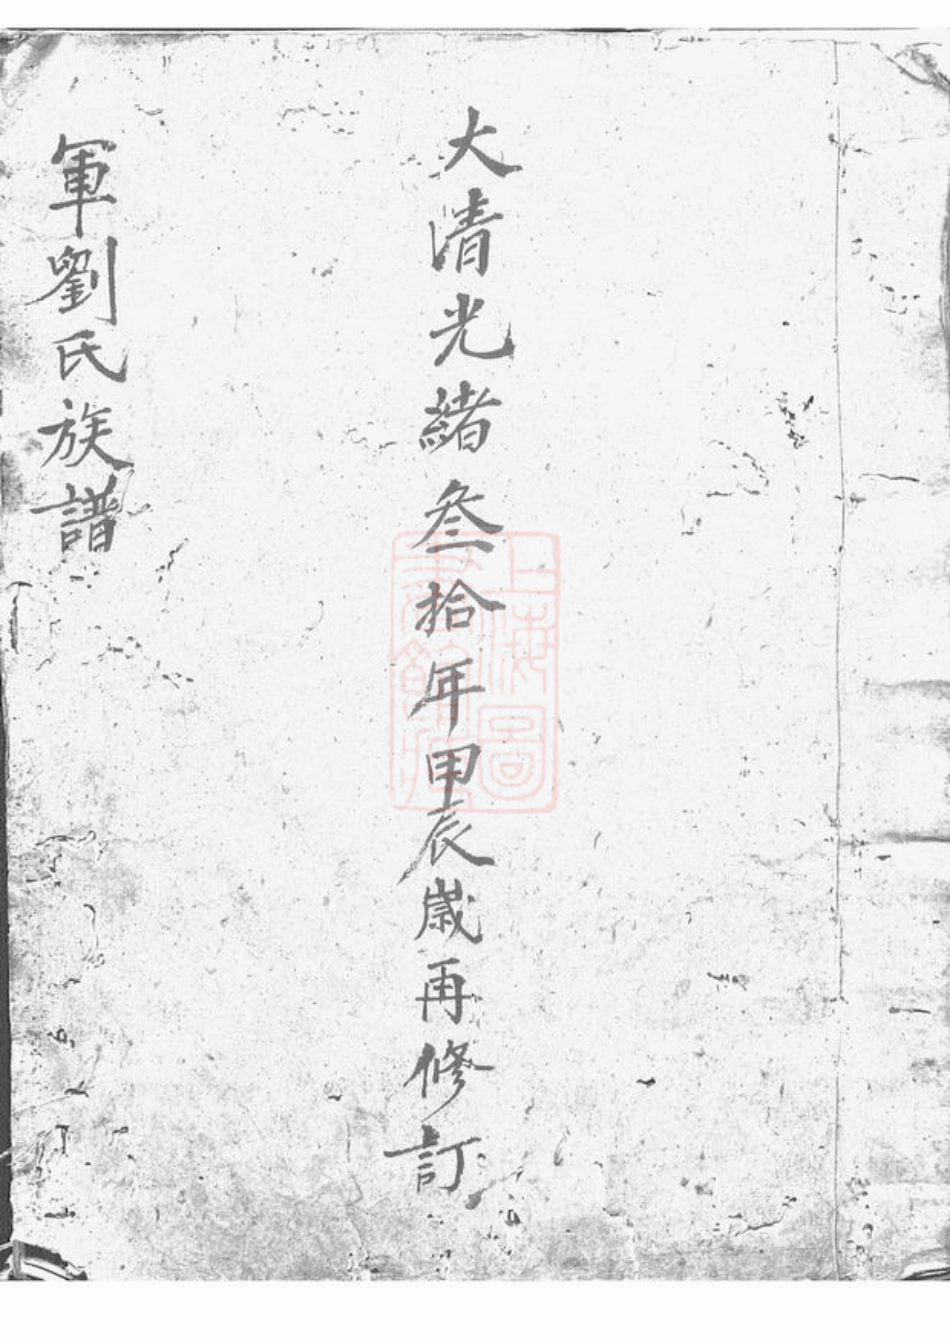 大清光緒叁拾年甲辰歲再修訂
軍劉氏族譜
上海圖書館藏